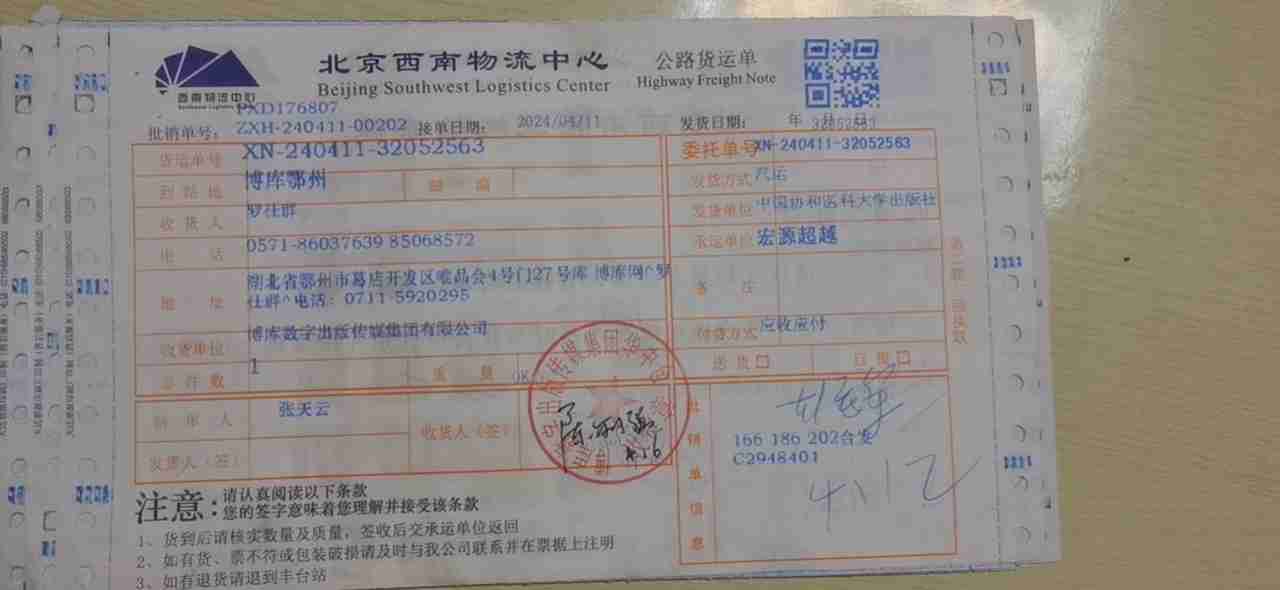 北京西南物流中心
公路货运单
Beijing Southwest Logistics Center
Highway Freight Note
西南物流中心
Southwest Logistics Center
PXD176807
批销单号: ZXH-240411-00202 接单日期: 2024/04/11 发货日期: 年 月 日 32052563
货运单号 XN-240411-32052563 委托单号 XN-240411-32052563
到站地 博库鄂州 邮编 发货方式 汽运
收货人 罗社群 发货单位 中国协和医科大学出版社
电话 0571-86037639 85068572 承运单位 宏源超越
地址 湖北省鄂州市葛店开发区唯品会4号门27号库 博库网^罗
社群^电话: 0711-5920295
备注
收货单位 博库数字出版传媒集团有限公司 付货方式 应收应付
总件数 1 重量
送货 自提
制单人 张天云 收货人(签)
发货人(签)
批销单信息
166 186 202合发
C2948401
4.12
注意:
请认真阅读以下条款
您的签字意味着您理解并接受该条款
1、货到后请核实数量及质量，签收后交承运单位返回
2、如有货、票不符或包装破损请及时与我公司联系并在票据上注明
3、如有退货请退到丰台站